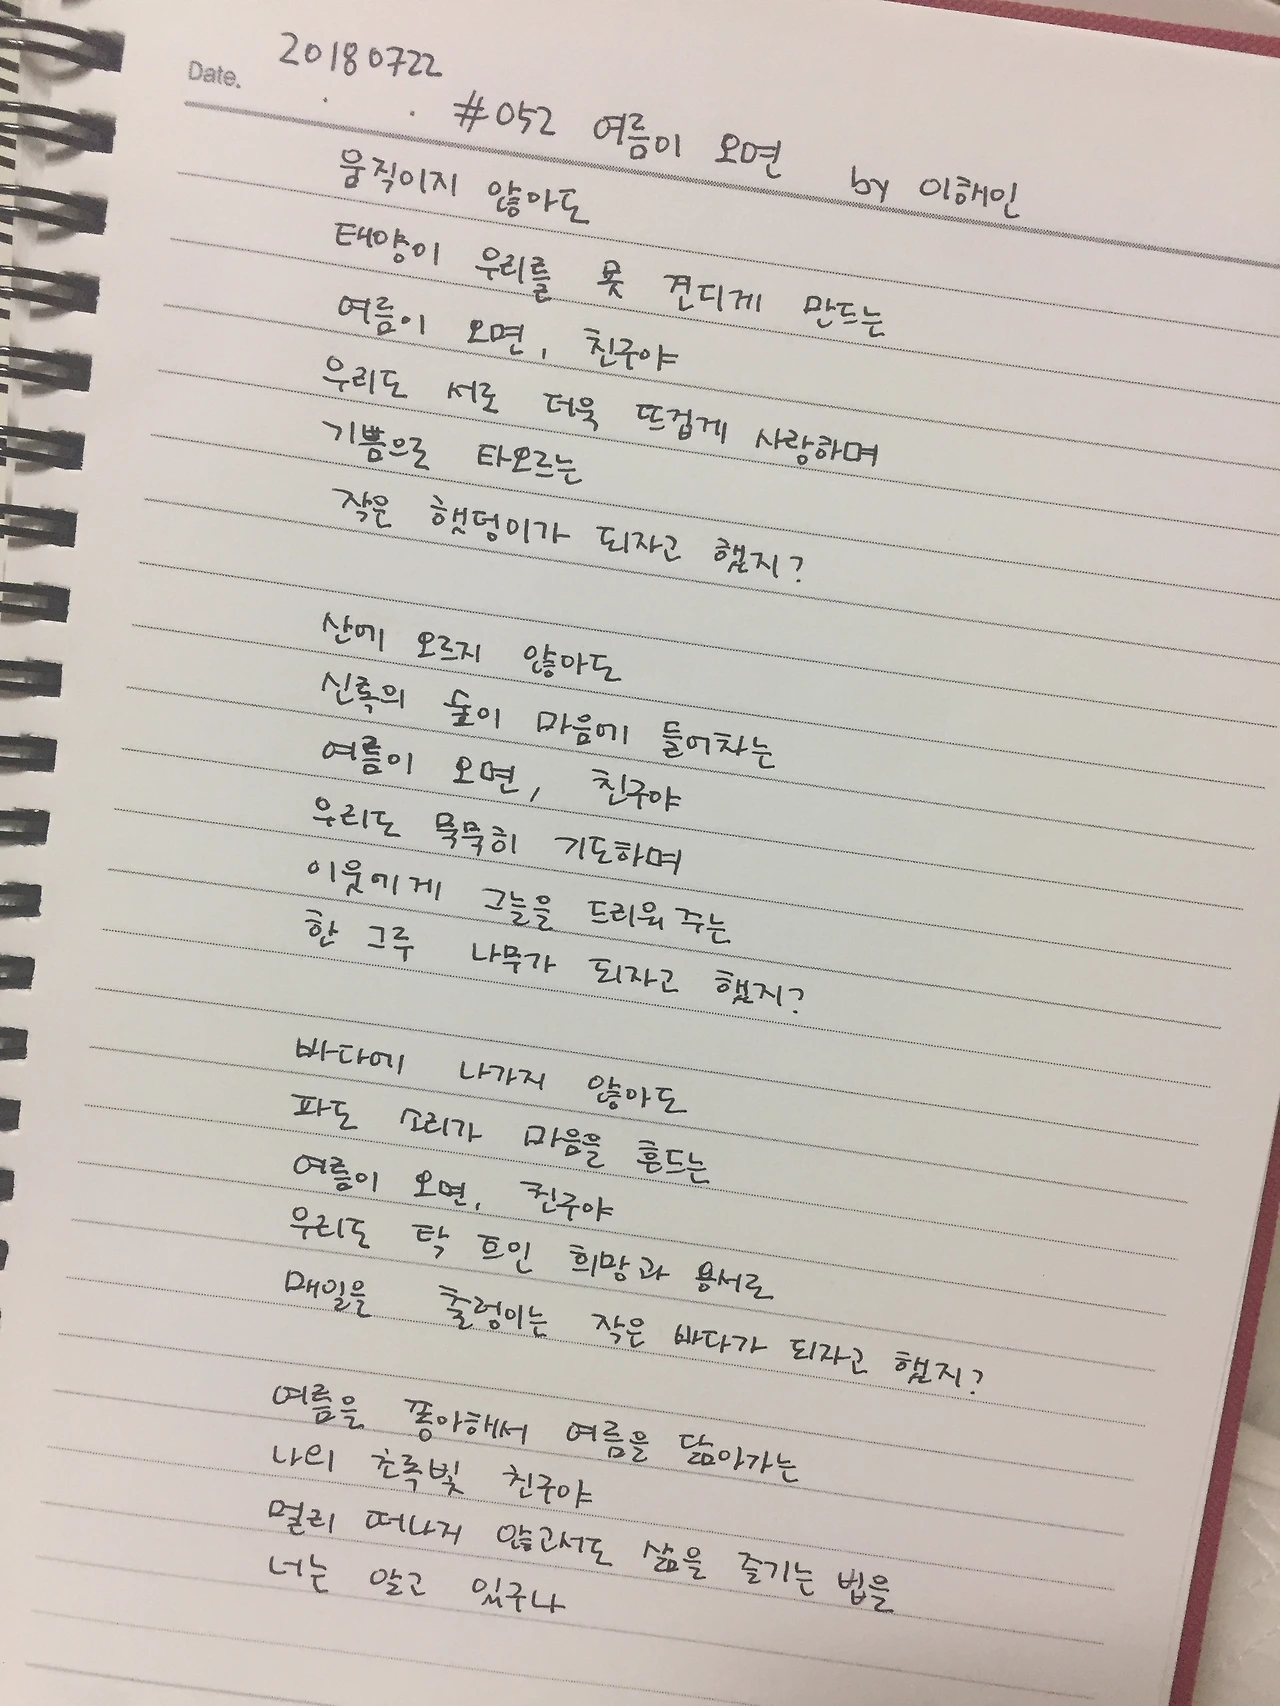 Date. 20180722
#052 여름이 오면 by 이해인
움직이지 않아도
태양이 우리를 못 견디게 만드는
여름이 오면, 친구야
우리도 서로 더욱 뜨겁게 사랑하며
기쁨으로 타오르는
작은 햇덩이가 되자고 했지?
산에 오르지 않아도
신록의 숲이 마음에 들어차는
여름이 오면, 친구야
우리도 묵묵히 기도하며
이웃에게 그늘을 드리워주는
한 그루 나무가 되자고 했지?
바다에 나가지 않아도
파도 소리가 마음을 흔드는
여름이 오면, 친구야
우리도 탁 트인 희망과 용서로
매일을 출렁이는 작은 바다가 되자고 했지?
여름을 좋아해서 여름을 닮아가는
나의 초록빛 친구야
멀리 떠나지 않고서도 삶을 즐기는 법을
너는 알고 있구나